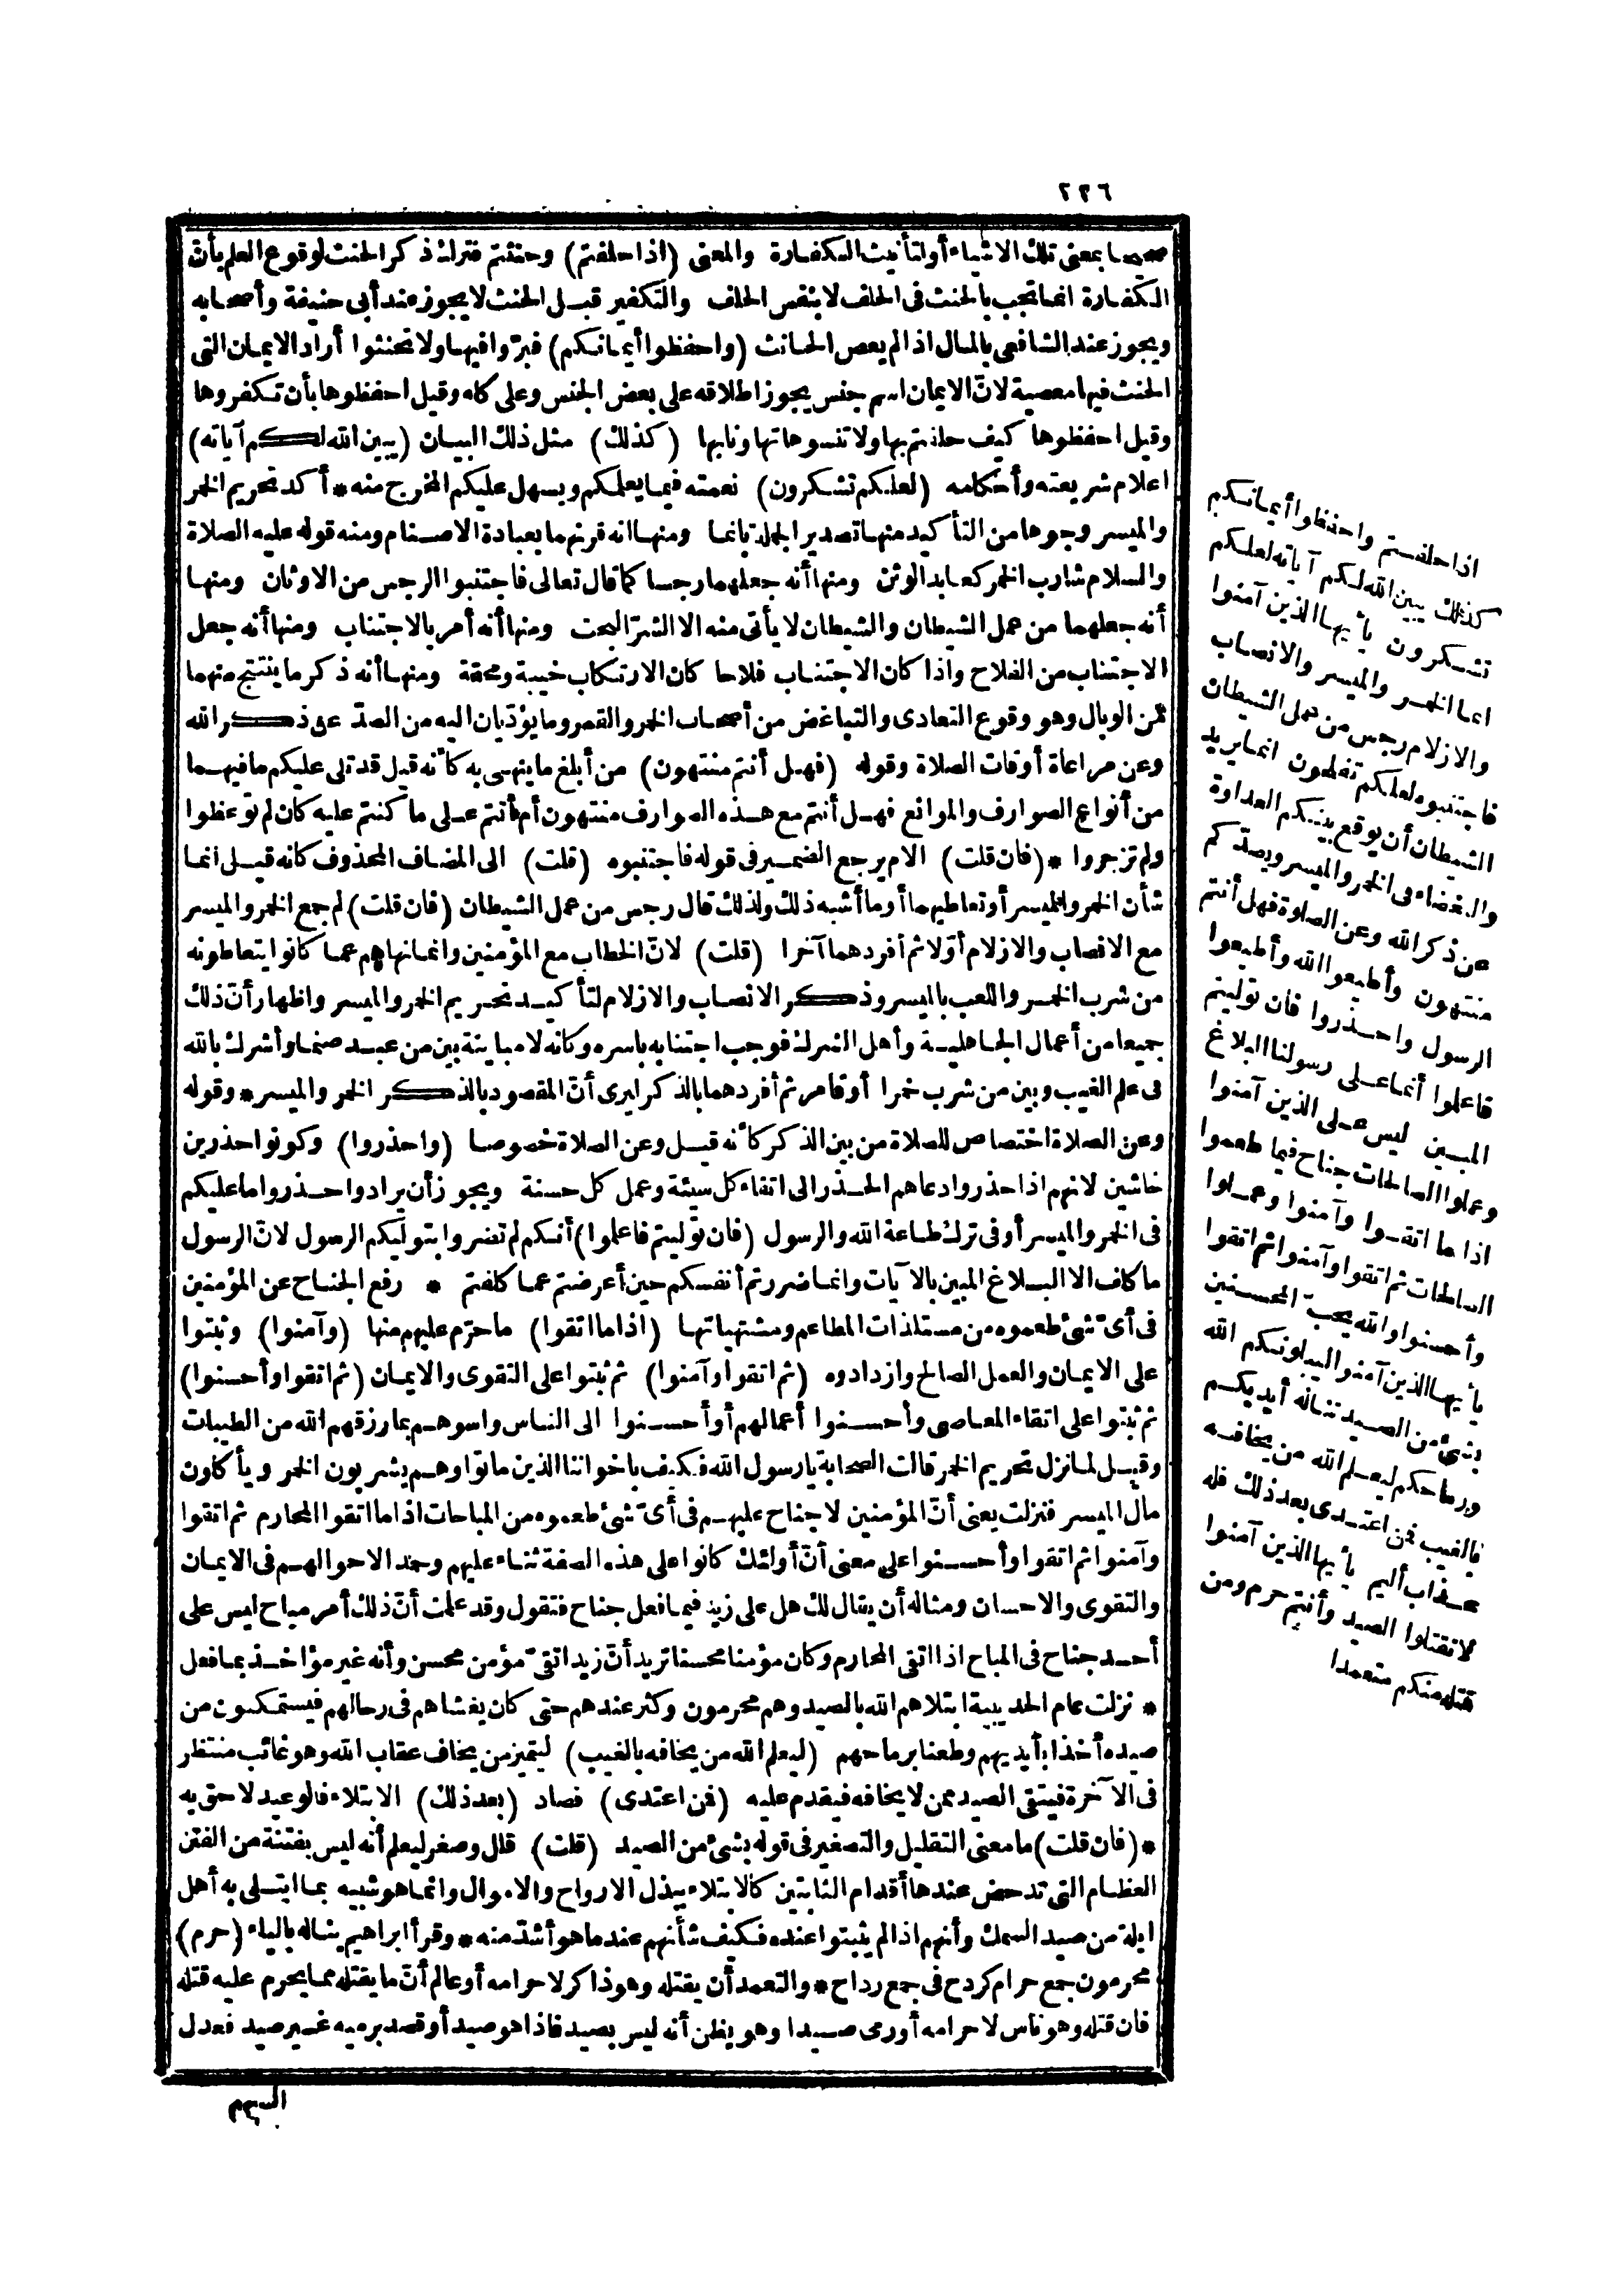 ٢٢٦
صحيحا بمعنى تلك الاشياء أو لتأنيث الكفارة والمعنى (اذا حلفتم) وحنثتم فترك ذكر الحنث لوقوع العلم بأن
الكفارة انما تجب بالحنث فى الحلف لا بنفس الحلف والتكفير قبل الحنث لا يجوز عند أبى حنيفة وأصحابه
ويجوز عند الشافعى بالمال اذا لم يعص الحانث (واحفظوا أيمانكم) فبرّوا فيها ولا تحنثوا أراد الايمان التى
الحنث فيها معصية لانّ الايمان اسم جنس يجوز اطلاقه على بعض الجنس وعلى كله وقيل احفظوها بأن تكفروها
وقيل احفظوها كيف حلفتم بها ولا تنسوها تهاونا بها (كذلك) مثل ذلك البيان (يبين الله لكم آياته)
اعلام شريعته وأحكامه (لعلكم تشكرون) نعمته فيما يعلمكم ويسهل عليكم المخرج منه * أكد تحريم الخمر
والميسر وجوها من التأكيد منها تصدير الجملة بانما ومنها انه قرنهما بعبادة الاصنام ومنه قوله عليه الصلاة
والسلام شارب الخمر كعابد الوثن ومنها أنه جعلهما رجسا كما قال تعالى فاجتنبوا الرجس من الاوثان ومنها
أنه جعلهما من عمل الشيطان والشيطان لا يأتى منه الا الشرّ البحت ومنها أنه أمر بالاجتناب ومنها أنه جعل
الاجتناب من الفلاح واذا كان الاجتناب فلاحا كان الارتكاب خيبة ومحقة ومنها أنه ذكر ما ينتج منهما
من الوبال وهو وقوع التعادى والتباغض من أصحاب الخمر والقمر وما يؤدّيان اليه من الصدّ عن ذكر الله
وعن مراعاة أوقات الصلاة وقوله (فهل أنتم منتهون) من أبلغ ما ينهى به كأنه قيل قد تلى عليكم ما فيهما
من أنواع الصوارف والموانع فهل أنتم مع هذه الصوارف منتهون أم أنتم على ما كنتم عليه كان لم توعظوا
ولم تزجروا * (فان قلت) الام يرجع الضمير فى قوله فاجتنبوه (قلت) الى المضاف المحذوف كانه قيل انما
شأن الخمر والميسر أو تعاطيهما أو ما أشبه ذلك ولذلك قال رجس من عمل الشيطان (فان قلت) لم جمع الخمر والميسر
مع الانصاب والازلام أوّلا ثم أفردهما آخرا (قلت) لانّ الخطاب مع المؤمنين وانما نهاهم عما كانوا يتعاطونه
من شرب الخمر واللعب بالميسر وذكر الانصاب والازلام لتأكيد تحريم الخمر والميسر واظهار أنّ ذلك
جميعا من أعمال الجاهلية وأهل الشرك فوجب اجتنابه باسره وكانه لا مباينة بين من عبد صنما وأشرك بالله
فى علم الغيب وبين من شرب خمرا أو قامر ثم أفردهما بالذكر ليرى أنّ المقصود بالذكر الخمر والميسر * وقوله
وعن الصلاة اختصاص للصلاة من بين الذكر كأنه قيل وعن الصلاة خصوصا (واحذروا) وكونوا حذرين
خاشين لانهم اذا حذروا دعاهم الحذر الى اتقاء كل سيئة وعمل كل حسنة ويجوز أن يراد واحذروا ما عليكم
فى الخمر والميسر أو فى ترك طاعة الله والرسول (فان توليتم فاعلموا) أنكم لم تضروا بتوليكم الرسول لانّ الرسول
ما كلف الا البلاغ المبين بالآيات وانما ضررتم أنفسكم حين أعرضتم عما كلفتم * رفع الجناح عن المؤمنين
فى أىّ شئ طعموه من مستلذات المطاعم ومشتهياتها (اذا ما اتقوا) ما حرّم عليهم منها (وآمنوا) وثبتوا
على الايمان والعمل الصالح وازدادوه (ثم اتقوا وآمنوا) ثم ثبتوا على التقوى والايمان (ثم اتقوا وأحسنوا)
ثم ثبتوا على اتقاء المعاصى وأحسنوا أعمالهم أو أحسنوا الى الناس واسوهم بما رزقهم الله من الطيبات
وقيل لما نزل تحريم الخمر قالت الصحابة يا رسول الله فكيف باخواننا الذين ماتوا وهم يشربون الخمر ويأكلون
مال الميسر فنزلت يعنى أنّ المؤمنين لا جناح عليهم فى أىّ شئ طعموه من المباحات اذا ما اتقوا المحارم ثم اتقوا
وآمنوا ثم اتقوا وأحسنوا على معنى أنّ أولئك كانوا على هذه الصفة ثناء عليهم وحمد الاحوالهم فى الايمان
والتقوى والاحسان ومثاله أن يقال لك هل على زيد فيما فعل جناح فتقول وقد علمت أنّ ذلك أمر مباح ليس على
أحد جناح فى المباح اذا اتقى المحارم وكان مؤمنا محسنا تريد أنّ زيدا تقىّ مؤمن محسن وأنه غير مؤاخذ بما فعل
* نزلت عام الحديبية ابتلاهم الله بالصيد وهم محرمون وكثر عندهم حتى كان يغشاهم فى رحالهم فيستمكنون من
صيده أخذا بأيديهم وطعنا برماحهم (ليعلم الله من يخافه بالغيب) ليتميز من يخاف عقاب الله وهو غائب منتظر
فى الآخرة فيتقى الصيد ممن لا يخافه فيقدم عليه (فمن اعتدى) فصاد (بعد ذلك) الابتلاء فالوعيد لاحق به
* (فان قلت) ما معنى التقليل والتصغير فى قوله بشئ من الصيد (قلت) قلل وصغر ليعلم أنه ليس بفتنة من الفتن
العظام التى تدحض عندها أقدام الثابتين كالابتلاء ببذل الارواح والاموال وانما هو شبيه بما ابتلى به أهل
ايلة من صيد السمك وأنهم اذا لم يثبتوا عنده فكيف شأنهم عند ما هو أشدّ منه * وقرأ ابراهيم يناله بالياء (حرم)
محرمون جمع حرام كردح فى جمع رداح * والتعمد أن يقتله وهو ذاكر لاحرامه أو عالم أنّ ما يقتله مما يحرم عليه قتله
فان قتله وهو ناس لاحرامه أو رمى صيدا وهو يظن أنه ليس بصيد فاذا هو صيد أو قصد برميه غير صيد فعدل
السهم
اذا حلفتم واحفظوا أيمانكم
كذلك يبين الله لكم آياته لعلكم
تشكرون يأيها الذين آمنوا
انما الخمر والميسر والانصاب
والازلام رجس من عمل الشيطان
فاجتنبوه لعلكم تفلحون انما يريد
الشيطان أن يوقع بينكم العداوة
والبغضاء فى الخمر والميسر ويصدّكم
عن ذكر الله وعن الصلوة فهل أنتم
منتهون وأطيعوا الله وأطيعوا
الرسول واحذروا فان توليتم
فاعلموا أنما على رسولنا البلاغ
المبين ليس على الذين آمنوا
وعملوا الصالحات جناح فيما طعموا
اذا ما اتقوا وآمنوا وعملوا
الصالحات ثم اتقوا وآمنوا ثم اتقوا
وأحسنوا والله يحبّ المحسنين
يأيها الذين آمنوا ليبلونكم الله
بشئ من الصيد تناله أيديكم
ورماحكم ليعلم الله من يخافه
بالغيب فمن اعتدى بعد ذلك فله
عذاب أليم يأيها الذين آمنوا
لا تقتلوا الصيد وأنتم حرم ومن
قتله منكم متعمدا